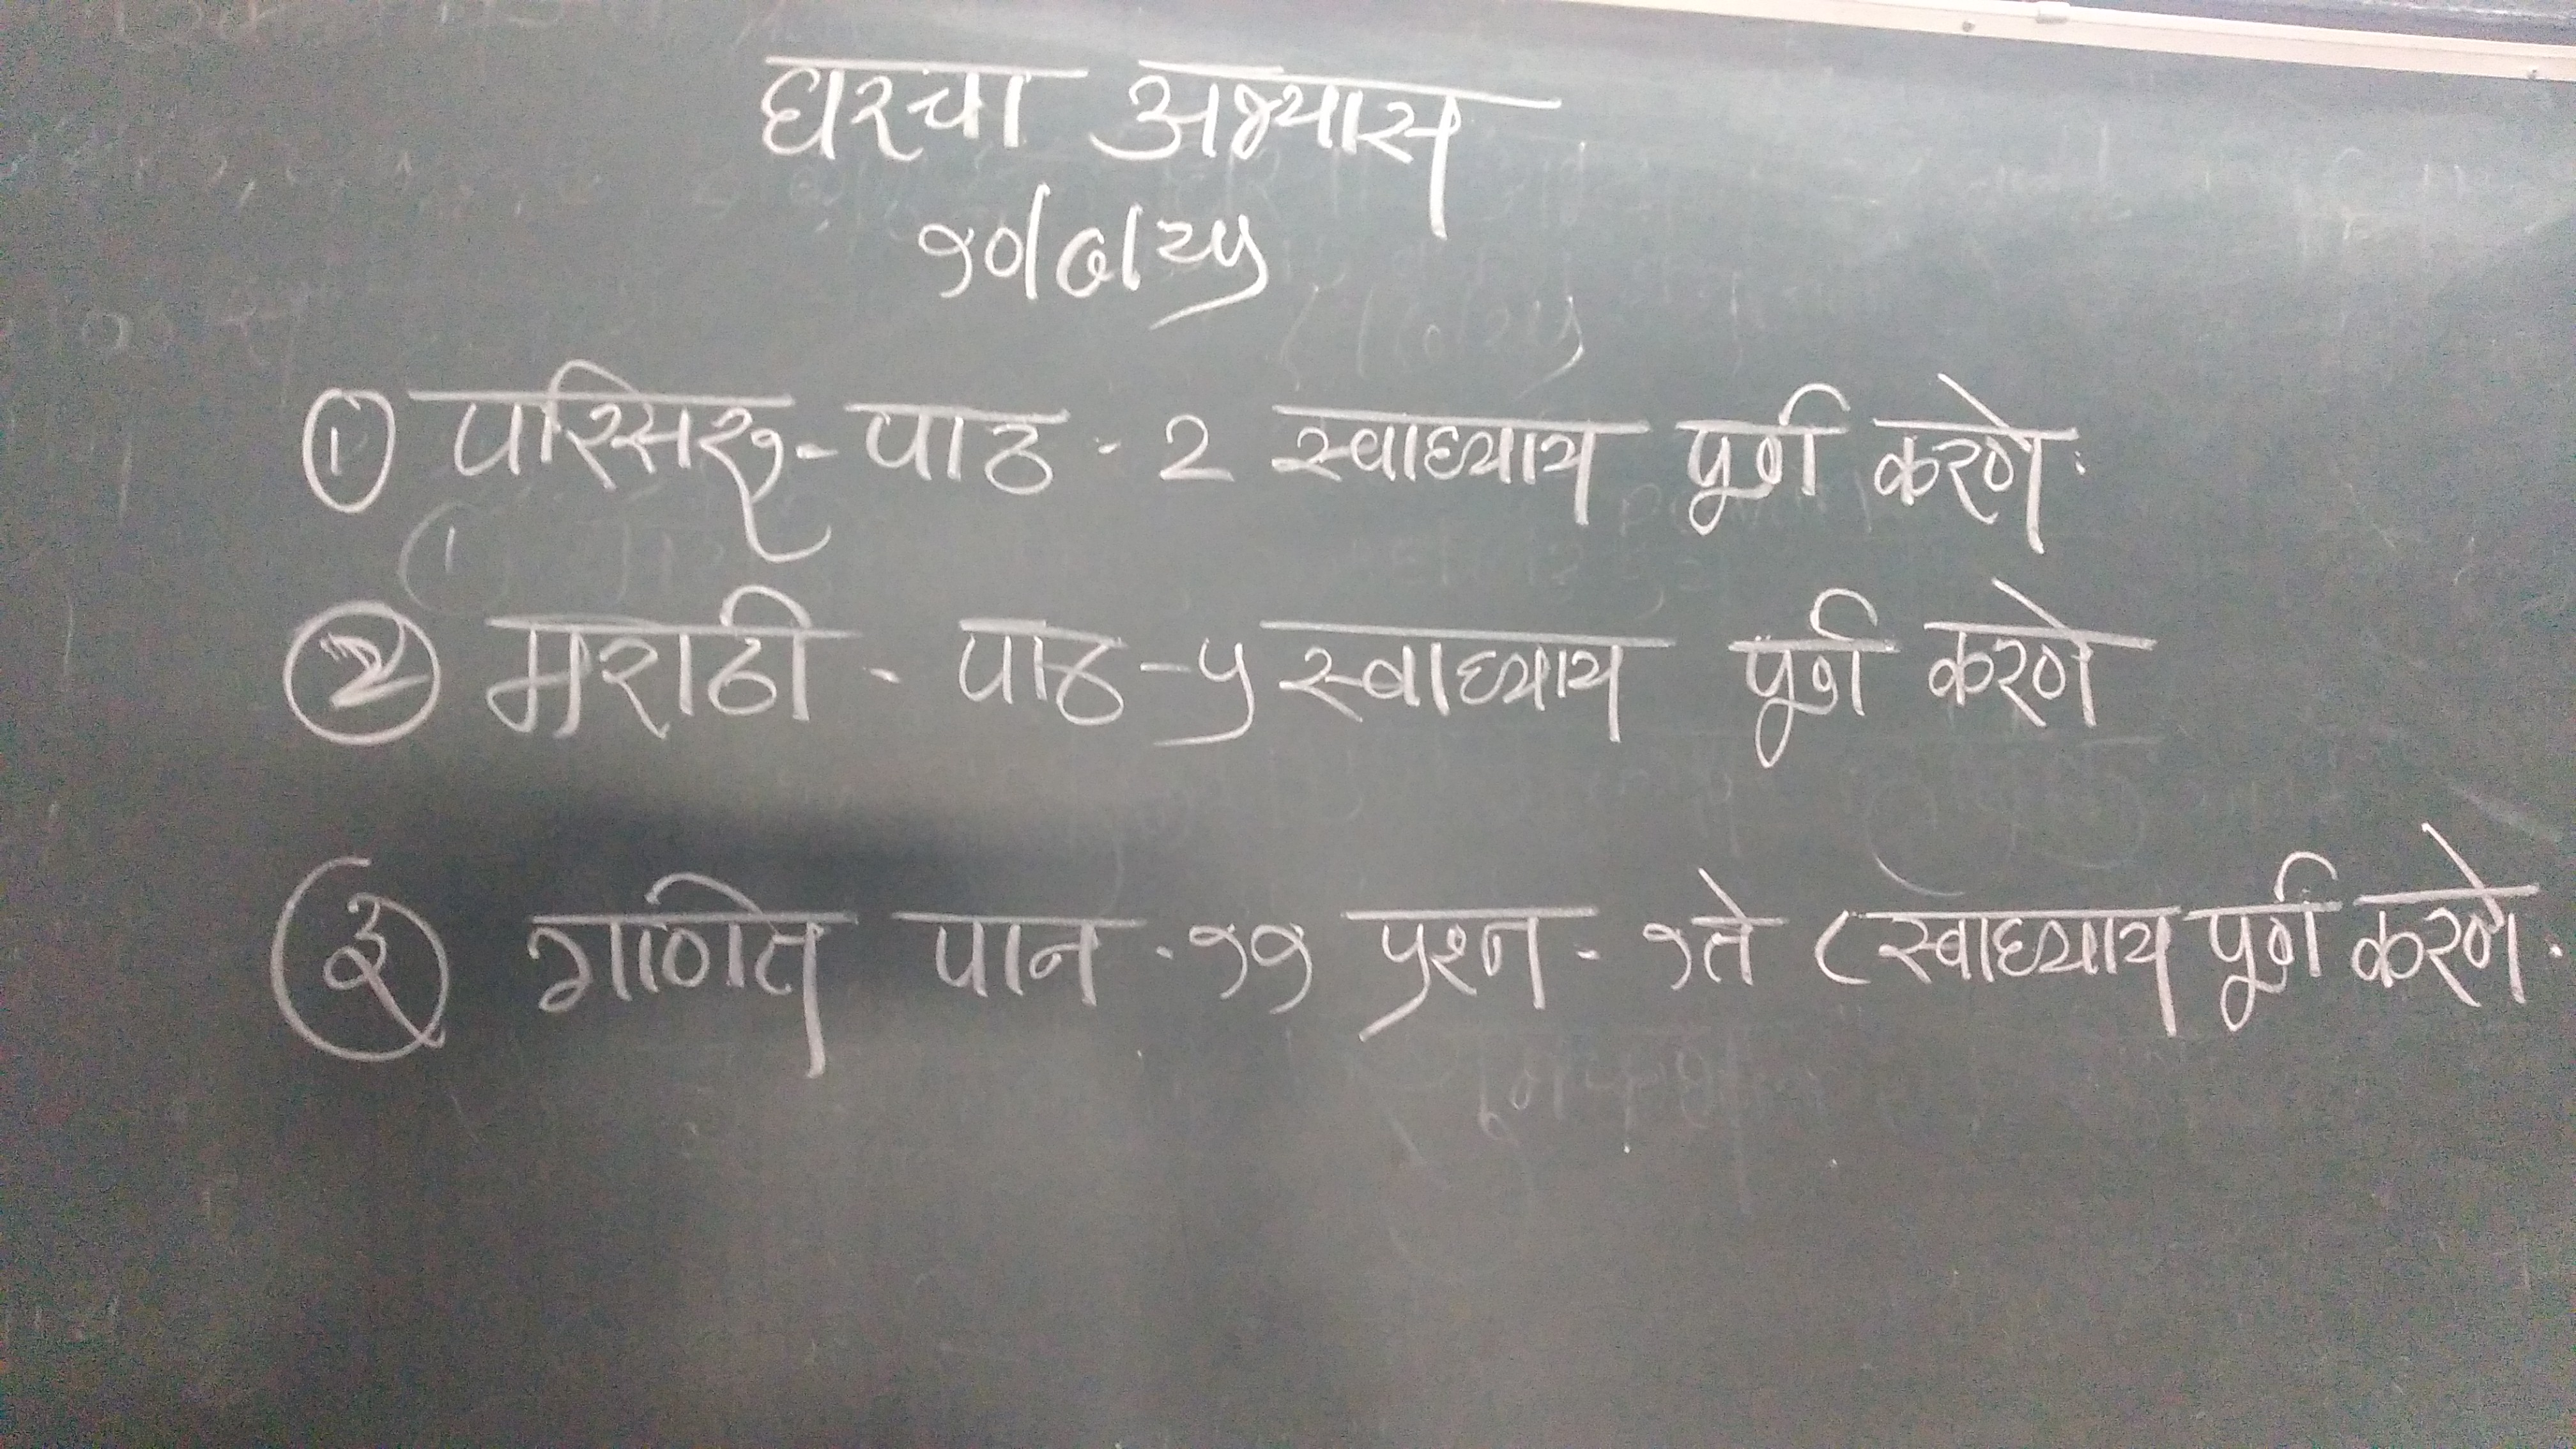 घरचा अभ्यास
१०/७/२५
① परिसर१ - पाठ - 2 स्वाध्याय पूर्ण करणे.
② मराठी - पाठ - ५ स्वाध्याय पूर्ण करणे
③ गणित पान - ११ प्रश्न - १ ते ८ स्वाध्याय पूर्ण करणे.